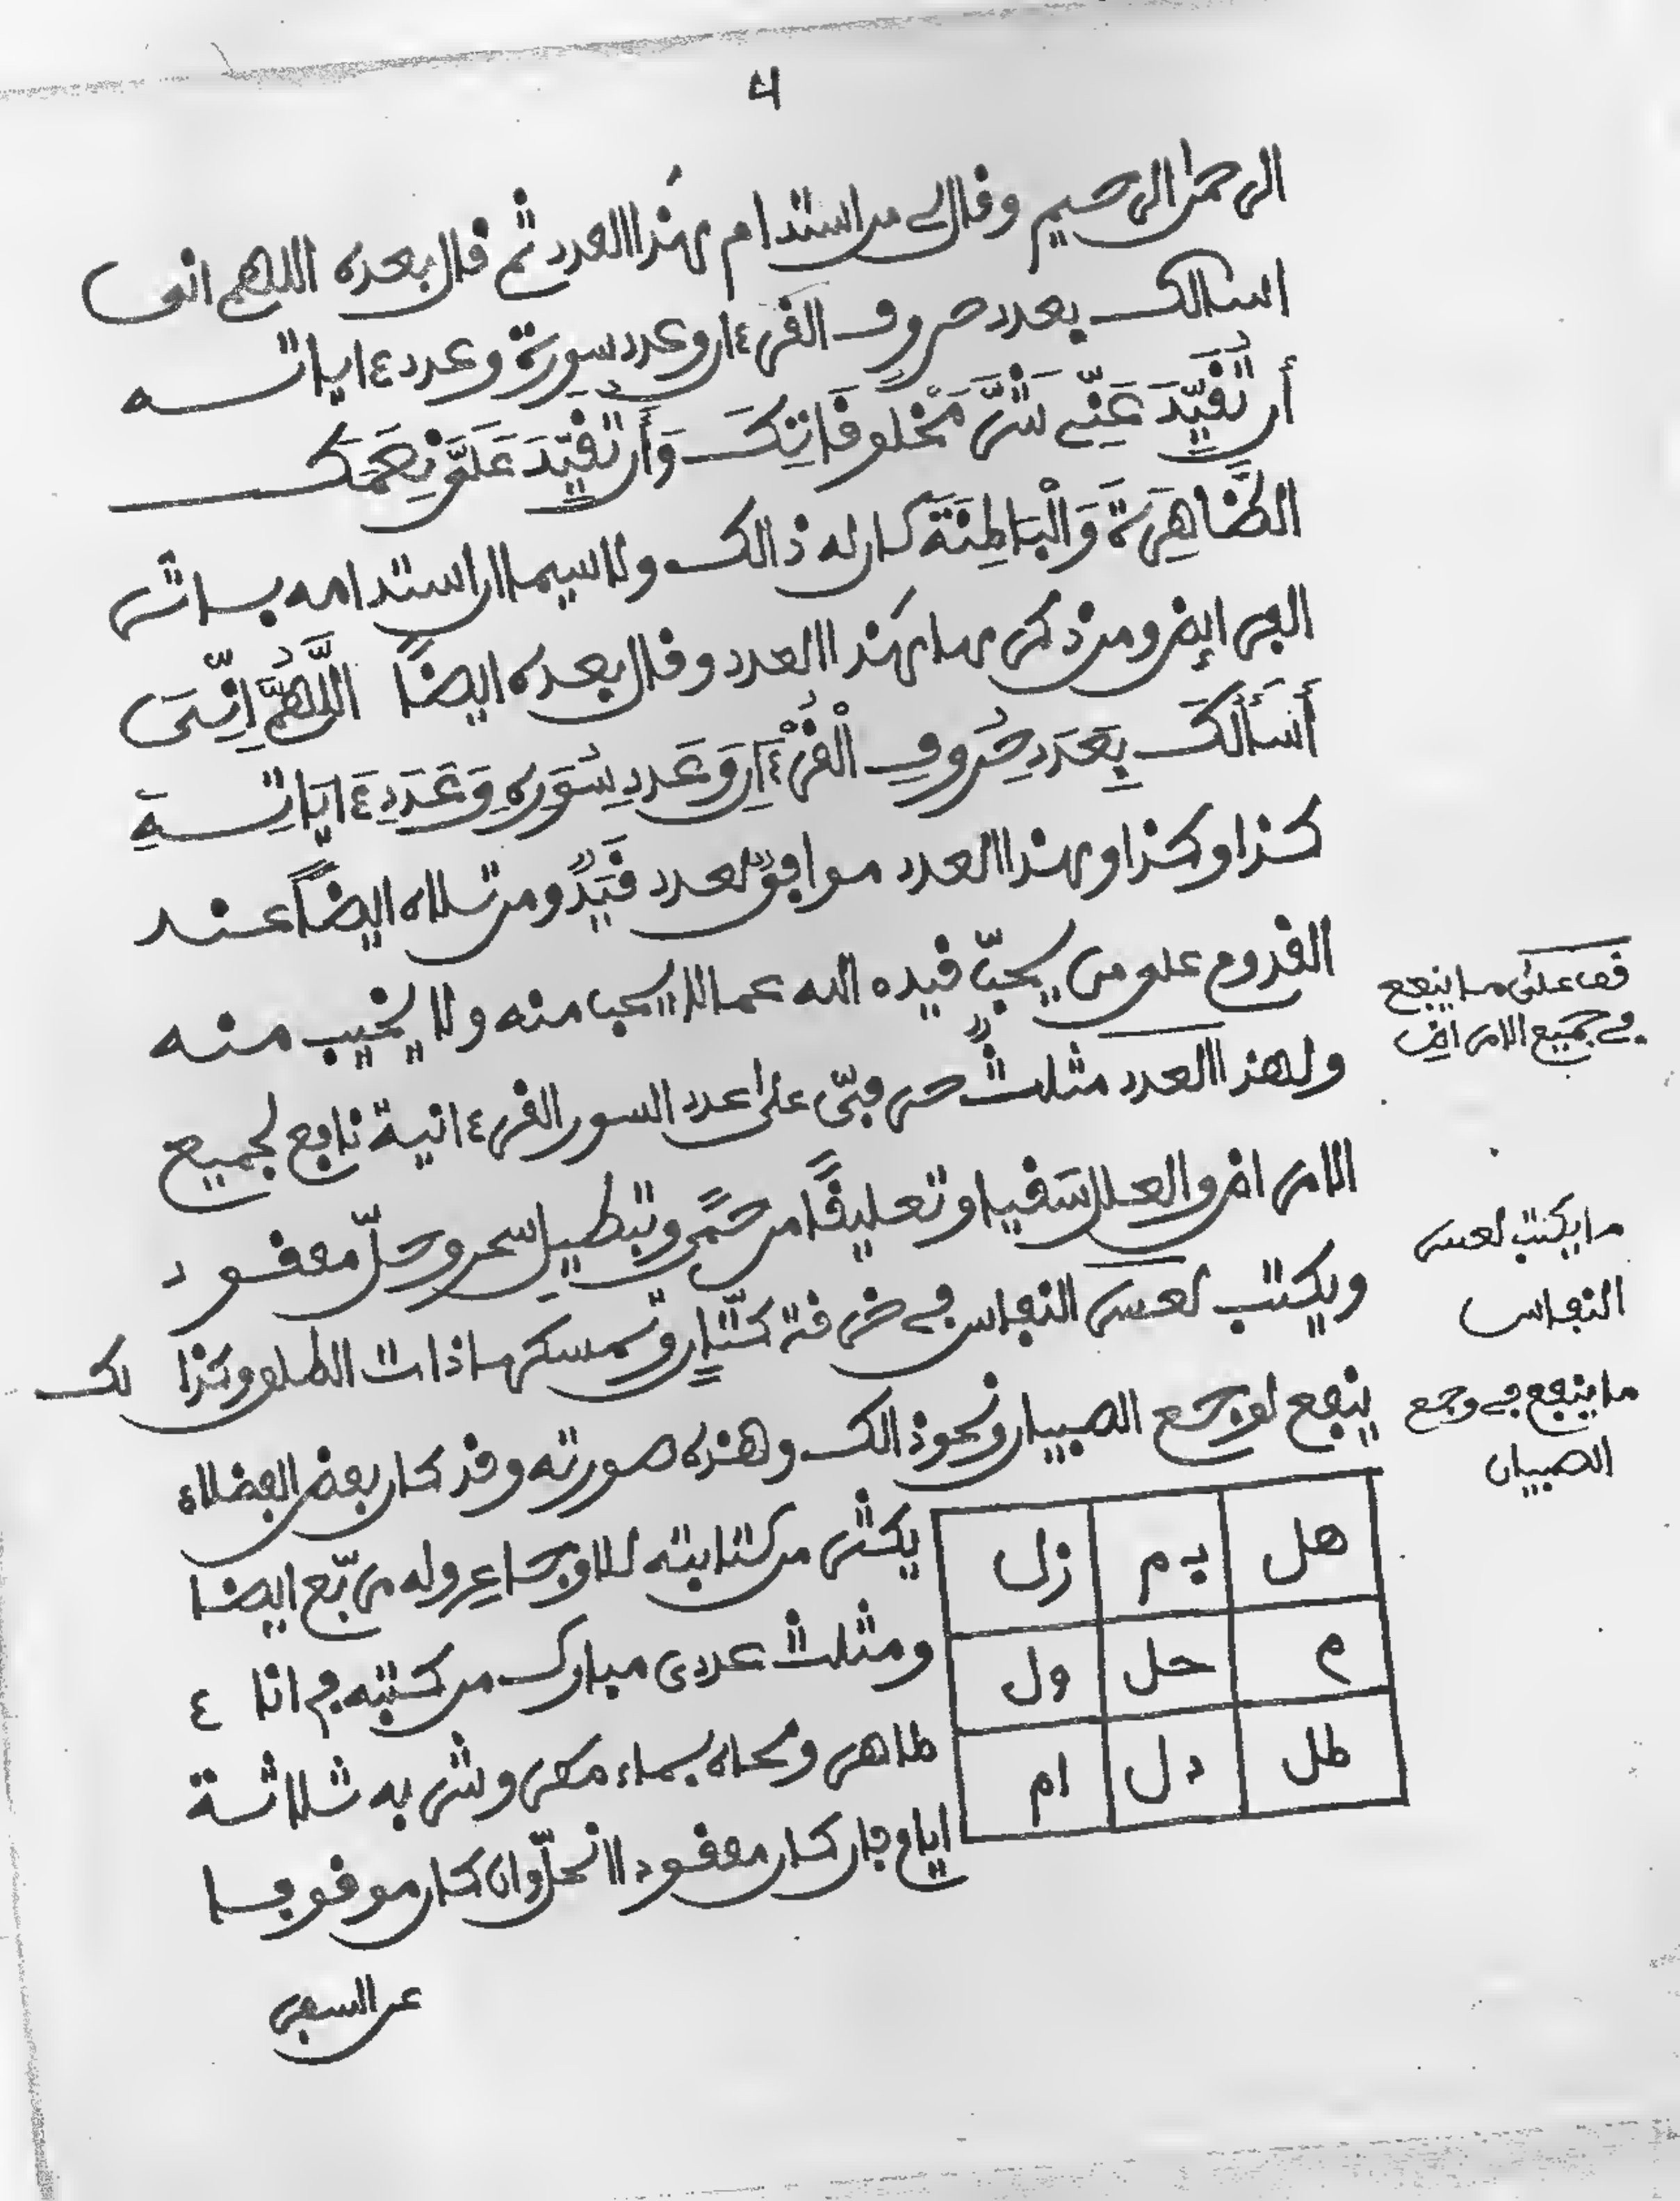 4
الرحمن الرحيم وقال لي من استدام بهذا العدد ثم قال بعده اللهم اني
اسالك بعدد حروف القرءان وعدد سورة وعدد ءاياته
أن تُقَيِّدَ عَنِّي شَرَّ مَخْلُوقَاتِكَ وَأَن تُقَيِّدَ عَلَىَّ نِعَمَكَ
الظَّاهِرَةَ وَالْبَاطِنَةَ كان له ذالك ولاسيما ان استدامه باثر
الفرايض ومن ذكر بها بهذا العدد وقال بعده ايضًا اللَّهُمَّ اِنِّى
أَسْأَلُكَ بِعَدَدِ حُرُوفِ الْقُرْءَانِ وَعَدَدِ سُوَرِهِ وَعَدَدِ ءَايَاتِهِ
كذا وكذا وهذا العدد موافق لعدد قَيِّدٌ ومن تلاه ايضًا عند
القدوم على من يحبّ قيده الله عما لا يحب منه ولا يخيب منه
ولهذا العدد مثلث حرفيّ على عدد السور القرءانية نافع لجميع
الامراض والعلل سَقيا وتعليقًا من حمًى وتبطيل سحر وحلّ معقود
ويكتب لعسر النفاس في خرقة كتّان وتمسكها ذات الطلق وكذا لك
ينفع لوجع الصبيان ونحو ذالك وهذه صورته وقد كان بعض الفضلاء
يكثر من كتابته للاوجاع وله مربّع ايضا
ومثلث عددى مبارك من كتبه في اناء
طاهر ومحاه بماء مطر وشربه ثلاثة
ايام فإن كان معقودا انحلّ وان كان موقوفا
عن السفر
قف على ما ينفع
في جميع الامراض
ما يكتب لعسر
النفاس
ما ينفع في وجع
الصبيان
هل يم زل
م حل ول
طل دل ام